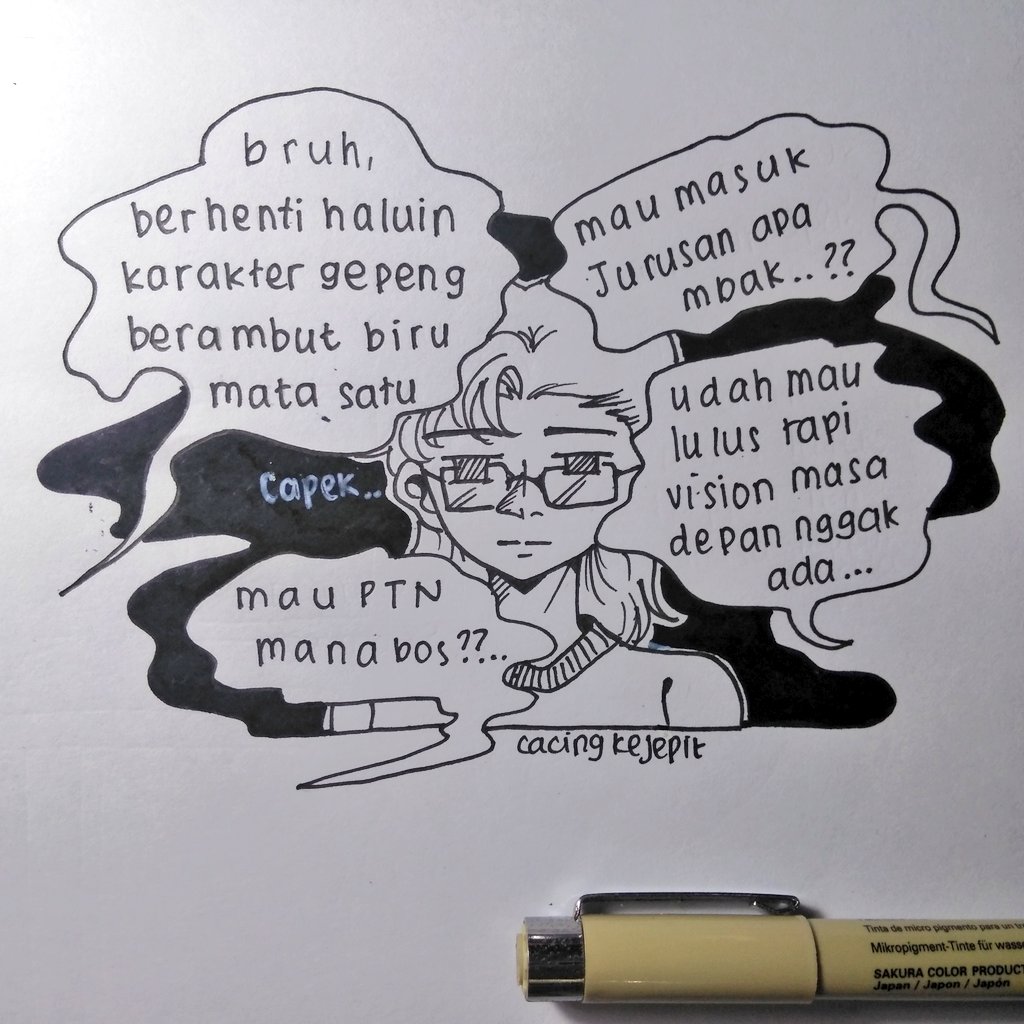 bruh,
berhenti haluin
karakter gepeng
berambut biru
mata satu
mau masuk
Jurusan apa
mbak..??
udah mau
lulus tapi
vision masa
depan nggak
ada...
capek..
mau PTN
mana bos??..
cacing kejepit
Tinta de micro pigmento para un
Mikropigment-Tinte für wasse
SAKURA COLOR PRODUCT
Japan / Japon / Japón